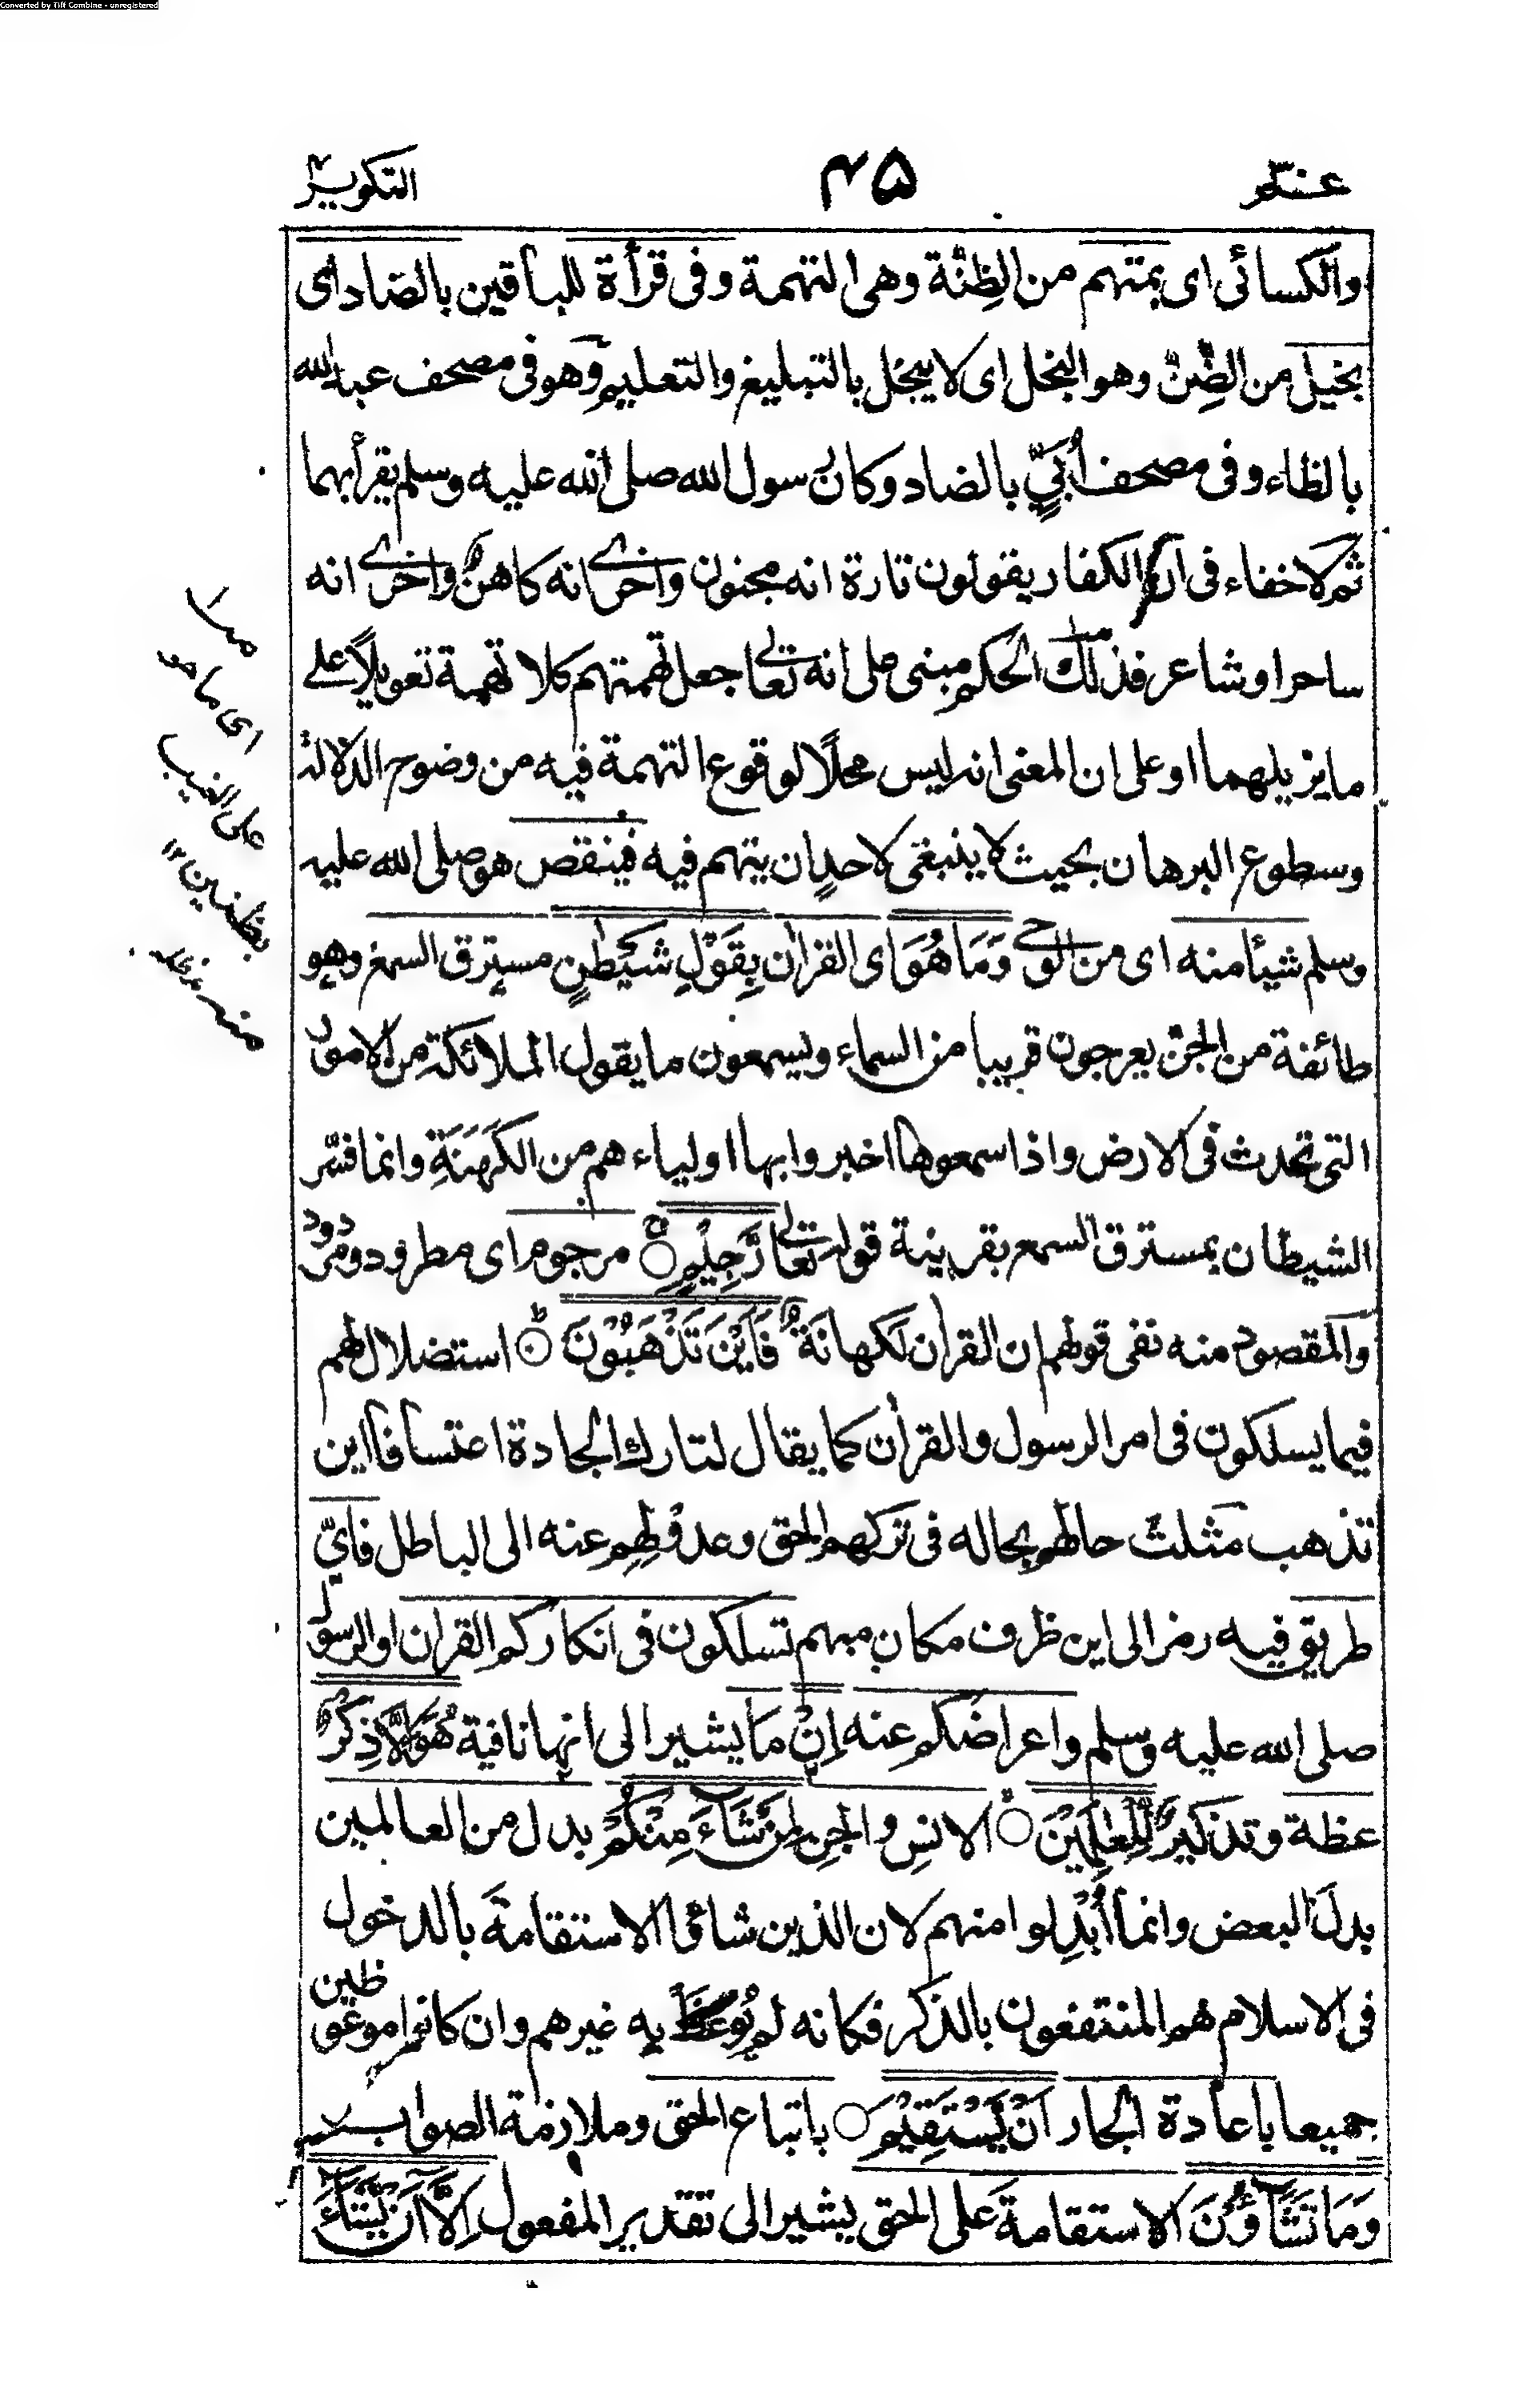 Converted by Tiff Combine - unregistered
عم ٤٥ التكوير
والكسائى اى بمتهم من الظِنَّة وهى التهمة وفى قرأة للباقين بالضاد اى
بخيل من الضِنِّ وهو البخل اى لا يبخل بالتبليغ والتعليم وهو فى مصحف عبد الله
بالظاء وفى مصحف اُبَيٍّ بالضاد وكان رسول الله صلى الله عليه وسلم يقرأ بهما
ثم لا خفاء فى ان الكفار يقولون تارة انه مجنون واخرى انه كاهن واخرى انه
ساحر او شاعر فذلك الحكم مبنى على انه تعالى جعل تهمتهم كلا تهمة تعويلاً على
ما يزيلهما او على ان المعنى انه ليس محلًا لوقوع التهمة فيه من وضوح الدلالة
وسطوع البرهان بحيث لا ينبغى لاحدٍ ان يتهم فيه فينقص هو صلى الله عليه
وسلم شيئا منه اى من الوحى وَمَا هُوَ اى القران بِقَوْلِ شَيْطٰنٍ مسترق السمع وهو
طائفة من الجن يعرجون قريبا من السماء ويسمعون ما يقول الملائكة من الامور
التى تحدث فى الارض واذا سمعوها اخبروا بها اولياء هم من الكَهَنَةِ وانما فسّر
الشيطان بمسترق السمع بقرينة قوله تعالى رَّجِيْمٍ ○ مرجوم اى مطرود ومردود
والمقصود منه نفى قولهم ان القران لكهانَة فَاَيْنَ تَذْهَبُوْنَ ○ استضلال لهم
فيما يسلكون فى امر الرسول والقرأن كما يقال لتارك الجادة اعتسافا اين
تذهب مثلث حالهم بحاله فى تركهم الحق وعدولهم عنه الى الباطل فاىّ
طريق فيه رمز الى اين ظرف مكان مبهم تسلكون فى انكاركم القران والرسول
صلى الله عليه وسلم واعراضكم عنه اِنْ ما يشير الى انها نافية هُوَ اِلَّا ذِكْرٌ
عظة وتذكير لِّلْعٰلَمِيْنَ ○ الانسِ والجنِ لِمَنْ شَآءَ مِنْكُمْ بدل من العالمين
بدلَ البعض وانما اُبْدِلوا منهم لان الذين شاؤا الاستقامةَ بالدخول
فى الاسلام هم المنتفعون بالذكر فكانه لم يُوعَظْ به غيرهم وان كانوا موعوظين
جميعا باعادة الجار اَنْ يَّسْتَقِيْمَ ○ باتباع الحق وملازمة الصواب
وَمَا تَشَآءُوْنَ الاستقامةَ على الحق يشير الى تقدير المفعول اِلَّآ اَنْ يَّشَآءَ
اى ما هو
على الغيب
بظنين ١٢
منه